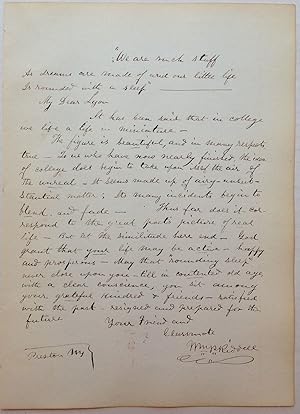 "We are such stuff
As dreams are made of and our little life
Is rounded with a sleep"
My Dear Lyon
It has been said that in college
we life a life in miniature –
The figure is beautiful, and in many respects
true – To us who have now nearly finished, the idea
of college does begin to take upon itself the air of
the unreal – It seems made up of airy – unsub-
stantial matter; Its many incidents begin to
blend and fade – Thus far does it cor
respond to the great poets picture of real
life – But at the similitude here end – God
grant that your life may be active – happy
and prosperous – May that "rounding sleep"
never close upon you – till in contented old age
with a clear conscience, you sit among
your grateful kindred & friends – satisfied
with the past – resigned and prepared for the
future
Your Friend and
Classmate
Riddell
Preston